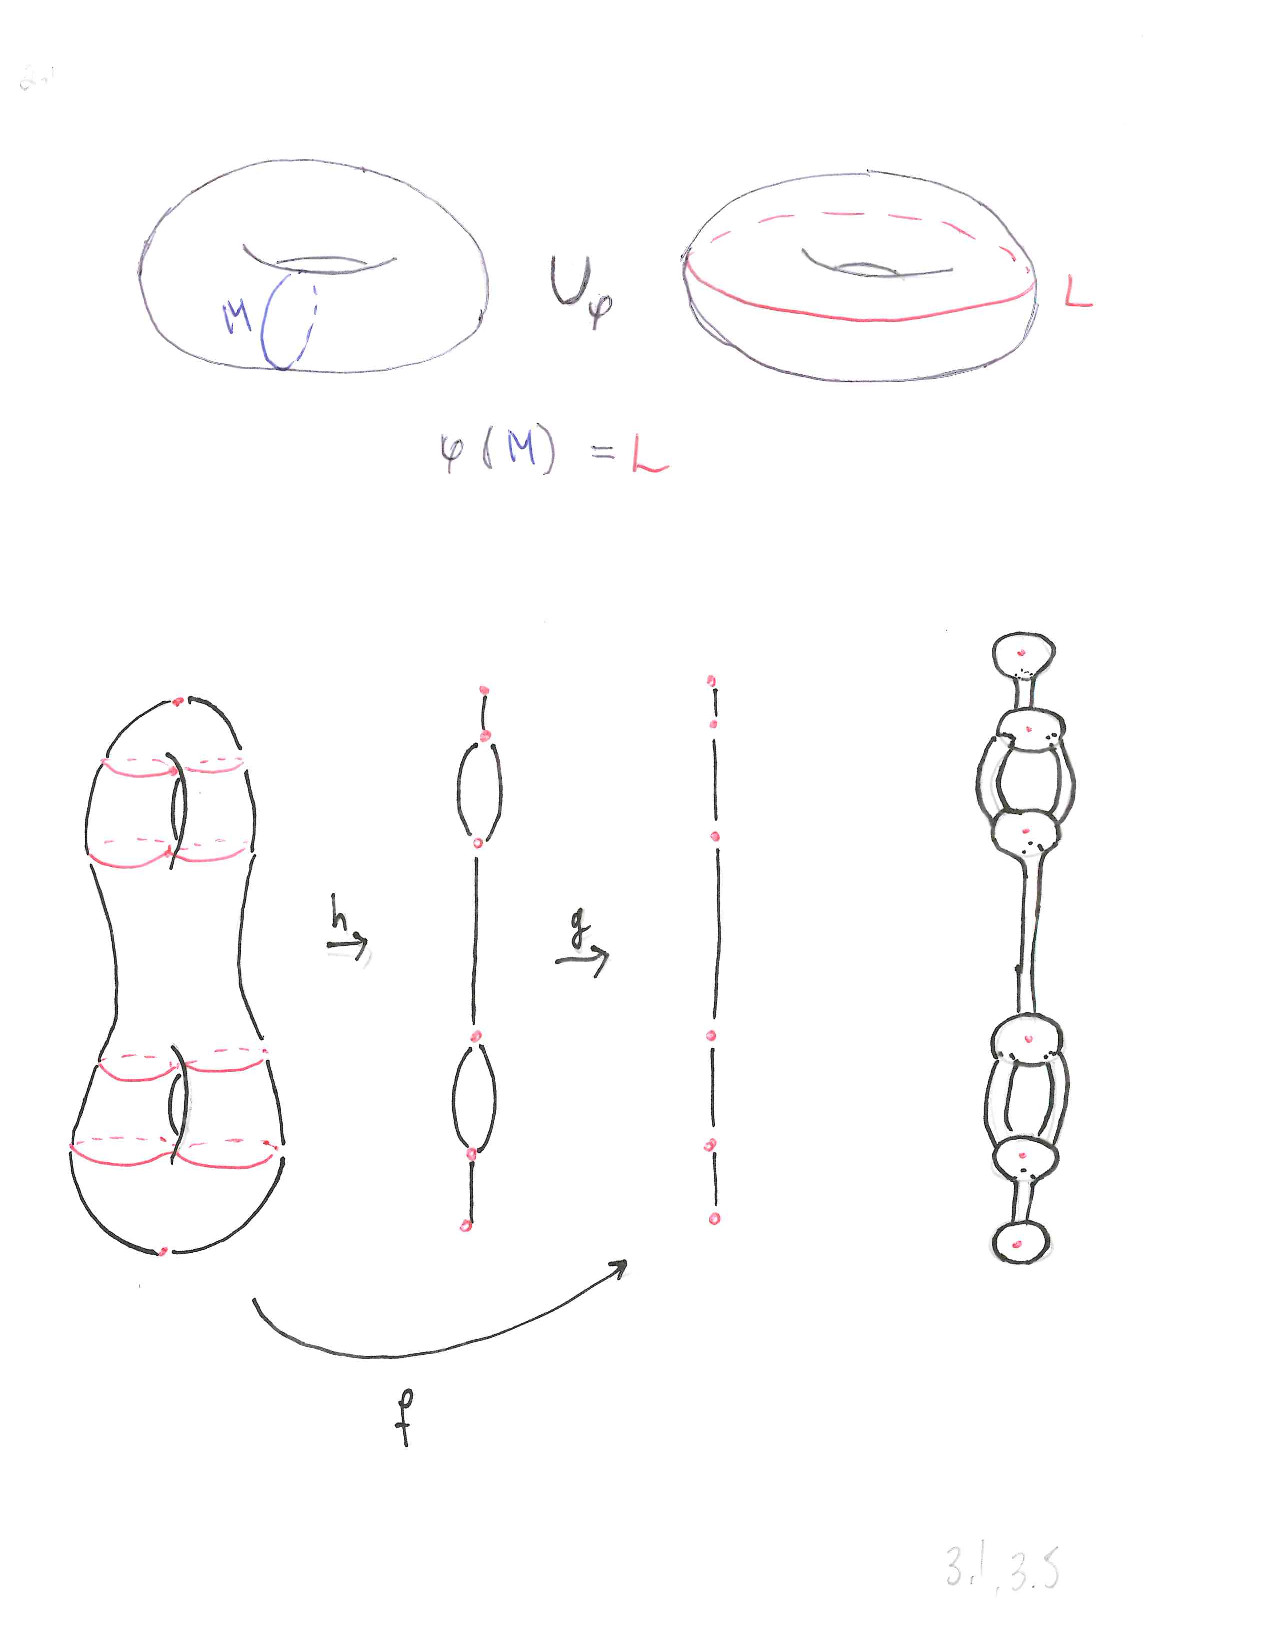 M ∪φ L
φ (M) = L
h g
f
3.1, 3.5